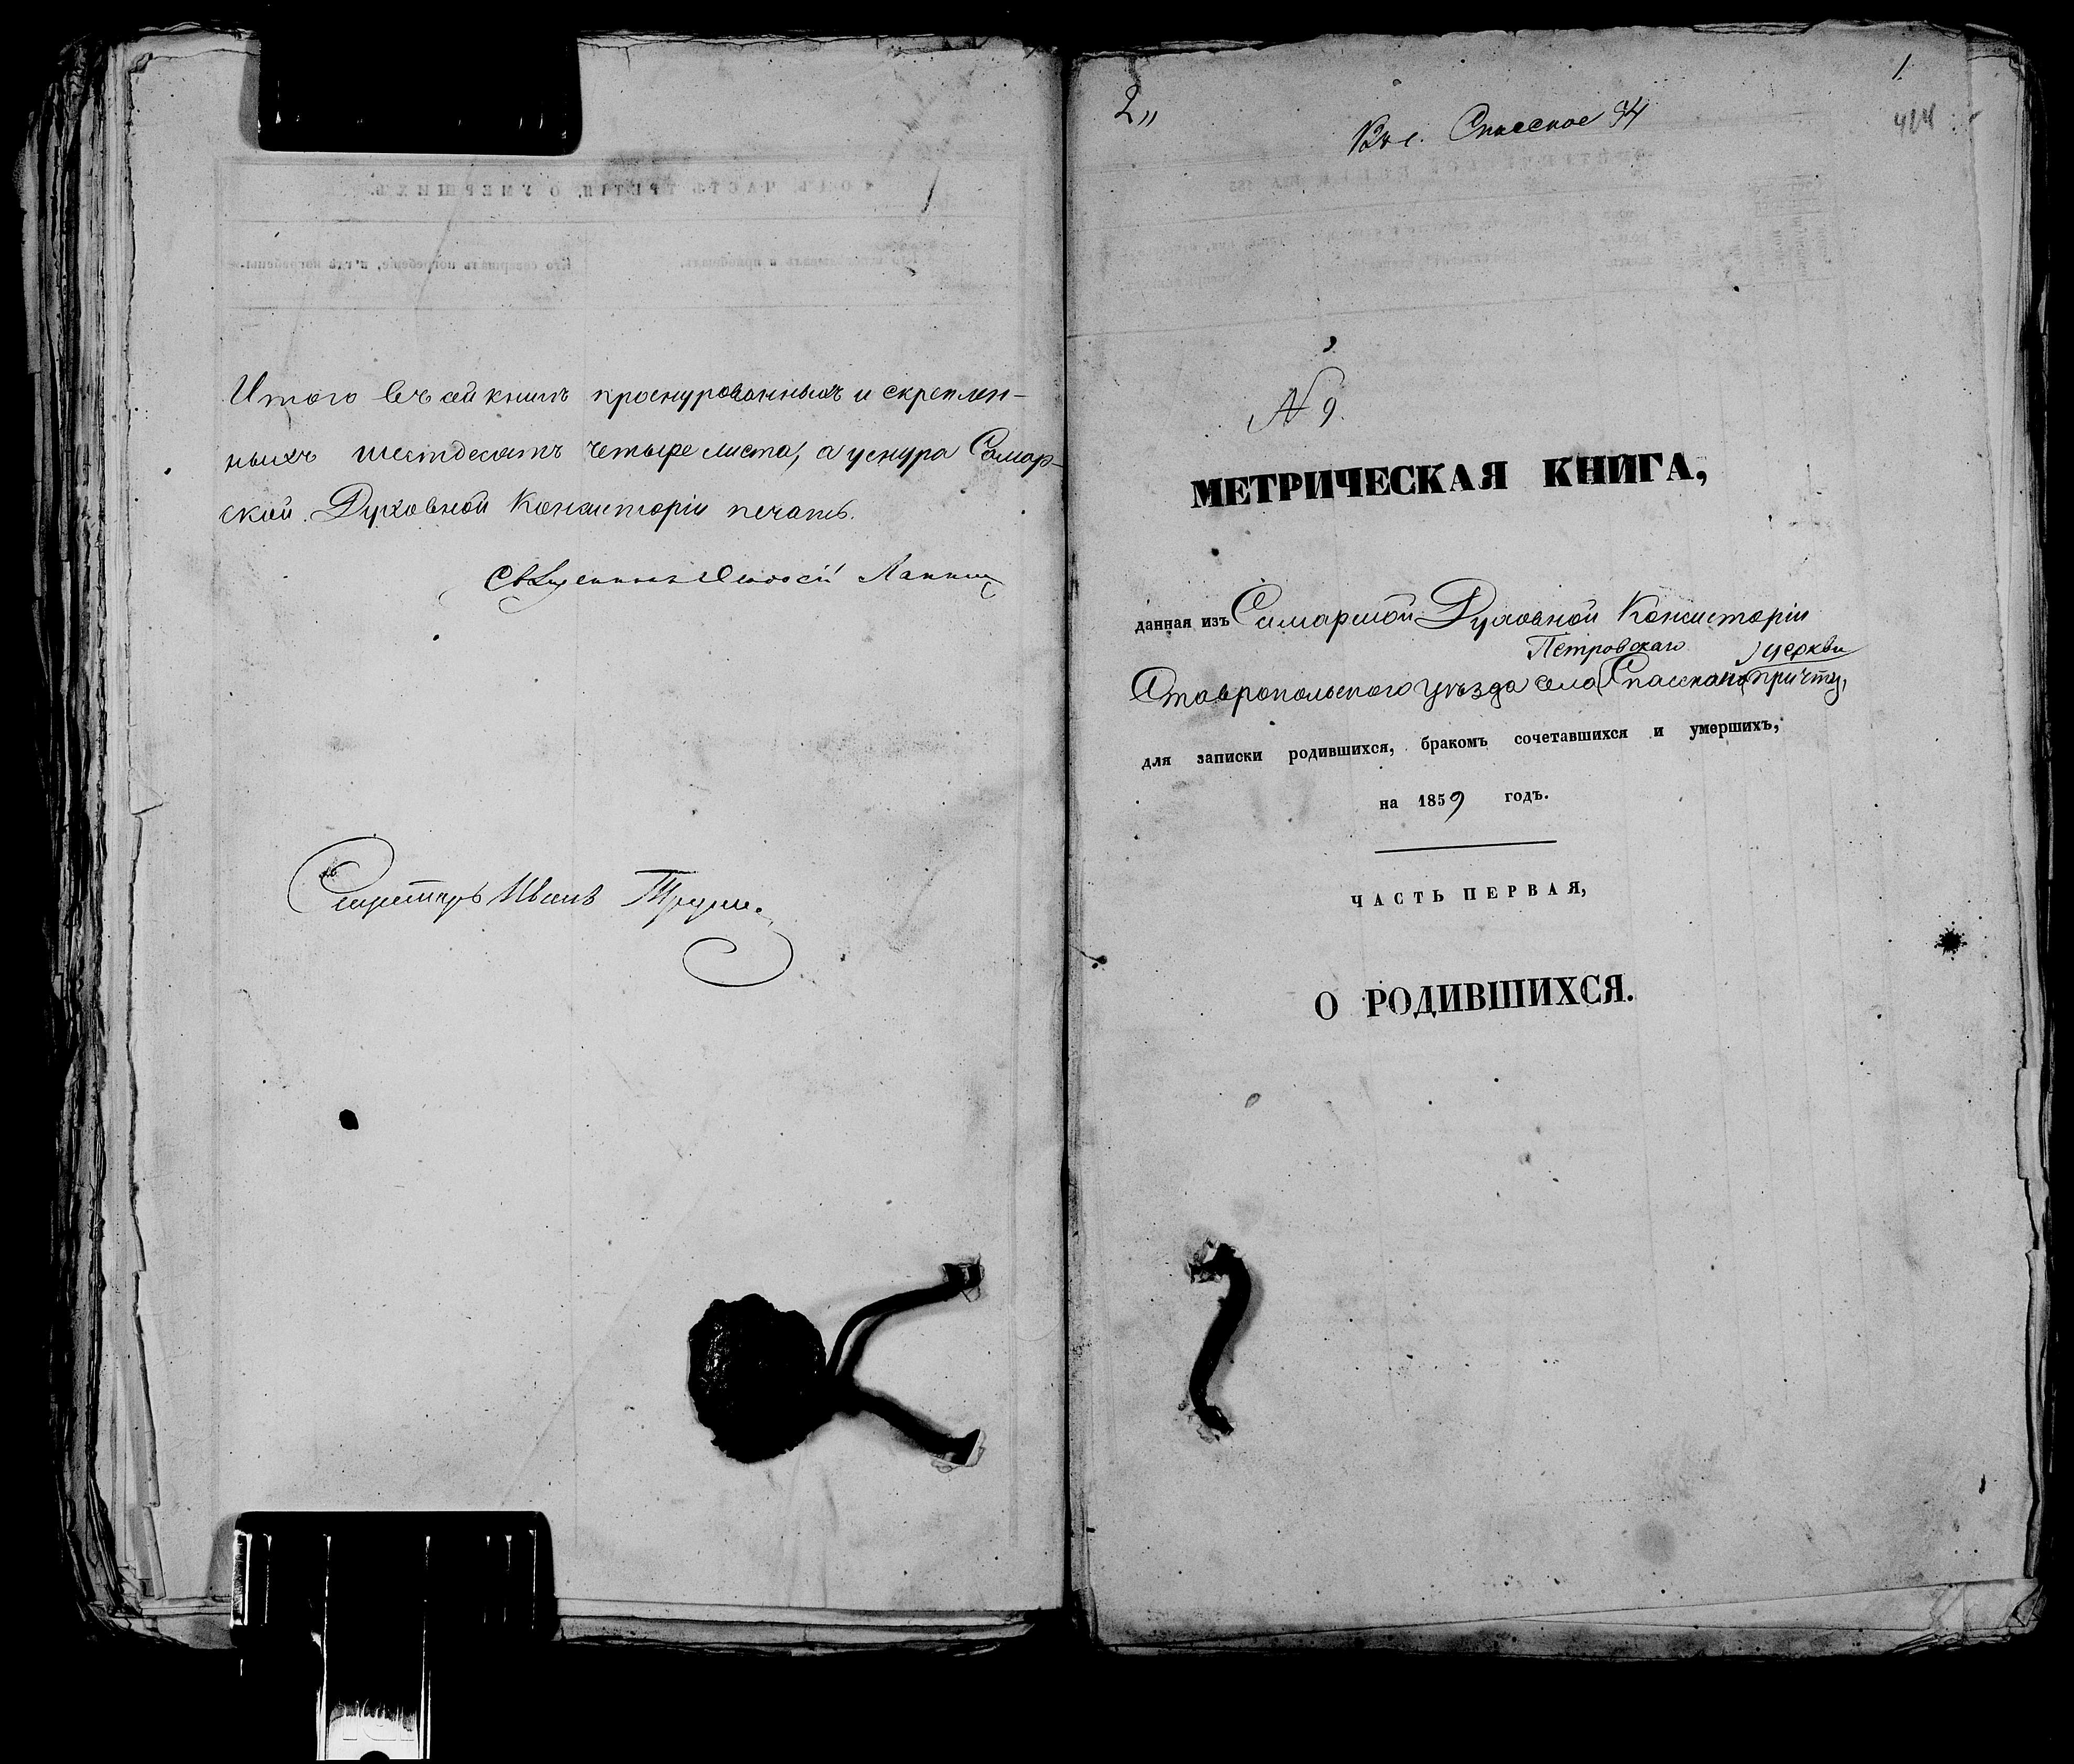 Итого въ сей книгѣ прошнурованныхъ и скреплен-
ныхъ шестдесятъ четыре листа, а у снура Самар-
ской Духовной Консисторіи печать.
Священникъ Алексѣй
Секретарь Иванъ
2„
Спасское 94
1.
414
№ 9.
МЕТРИЧЕСКАЯ КНИГА,
данная изъ Самарской Духовной Консисторіи
Петровскаго церкви
Ставропольскаго уѣзда села Спасскаго причту,
для записки родившихся, бракомъ сочетавшихся и умершихъ,
на 1859 годъ.
ЧАСТЬ ПЕРВАЯ,
О РОДИВШИХСЯ.